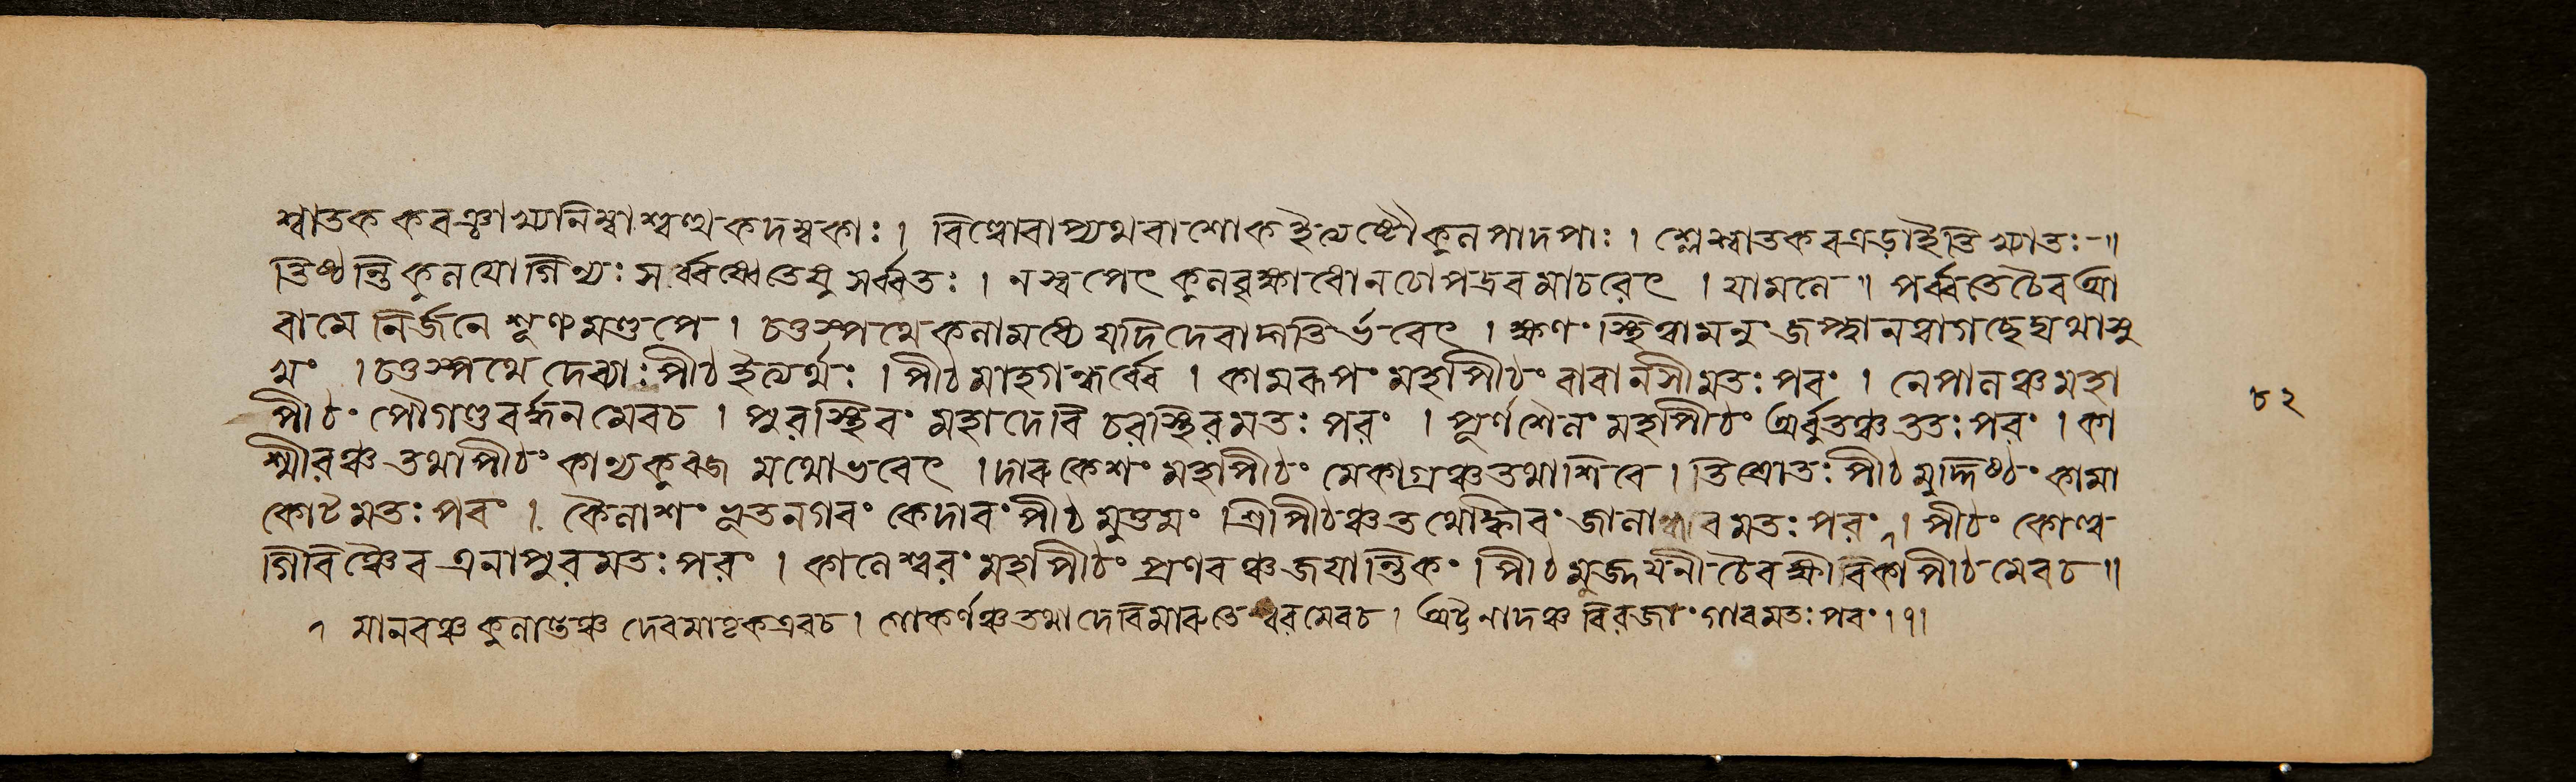 শ্বাতক করঞ্জাখ্যনিম্বাশ্বত্থকদম্বকাঃ। বিল্বোবাপ্যথবাশোক ইত্যষ্টৌকুলপাদপাঃ। শ্লেষ্মাতকবএড়াইতিখ্যাতঃ॥
তিষ্ঠন্তিকুলযোগিন্যঃ সর্ব্ববৃক্ষেতেষু সর্ব্বতঃ। নস্বপেৎ কুলবৃক্ষাধোনচোপদ্রবমাচরেৎ। যামলে॥ পর্ব্বতেচৈবআ
রামে নির্জনে শূণ্যমণ্ডপে। চতুস্পথে কলামধ্যে যদিদেবাদ্গতির্ভবেৎ। ক্ষণং স্থিত্বামনুং জপ্ত্বানত্বাগচ্ছেদ্যথাসু
খং। চতুস্পথে দেব্যাঃ পীঠইত্যর্থঃ। পীঠমাহগন্ধর্ব্বে। কামরূপং মহাপীঠং বারানসীমতঃপরং। নেপালঞ্চমহা
পীঠং পৌগণ্ডবর্দ্ধনমেবচ। পুরস্থিরং মহাদেবি চরস্থিরমতঃপরং। পূর্ণশৈলং মহাপীঠং অর্বুতঞ্চততঃপরং। কা
শ্মীরঞ্চ তথাপীঠং কান্যকুব্জ মথোভবেৎ। দারুকেশং মহাপীঠং মেকাগ্রঞ্চতথাশিবে। তিশ্রোতঃপীঠমুদ্দিষ্ঠং কামা
কোটমতঃপরং। কৈলাশং ভৃতনগরং কেদারং পীঠমুত্তমং। শ্রিপীঠঞ্চতথোঙ্কারং জালান্ধরমতঃপরং। পীঠং কোল্ব
গিরিঞ্চৈব এলাপুরমতঃপরং। কালেশ্বরং মহাপীঠং প্রণবঞ্চজয়ান্তিকং। পীঠমুজ্জয়নীচৈবক্ষীরিকাপীঠমেবচ॥
৭ মালবঞ্চ কুলাণ্ডঞ্চ দেবমাতৃকএবচ। গোকর্ণঞ্চতথাদেবিমারুতেশ্বরমেবচ। অট্টনাদঞ্চ বিরজাং গারমতঃপরং।৭।
৮২